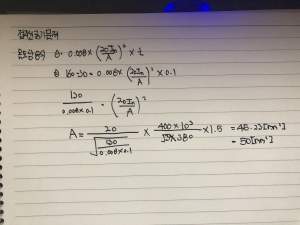 접지선굵기문제
온도상승식 θ = 0.008 × (20In / A)² × t
θ 160-30 = 0.008 × (20In / A)² × 0.1
130 / 0.008×0.1 = (20In / A)²
A = 20 / √(130 / 0.008×0.1) × 400×10³ / √3×380 × 1.5 = 45.22[mm²]
= 50[mm²]